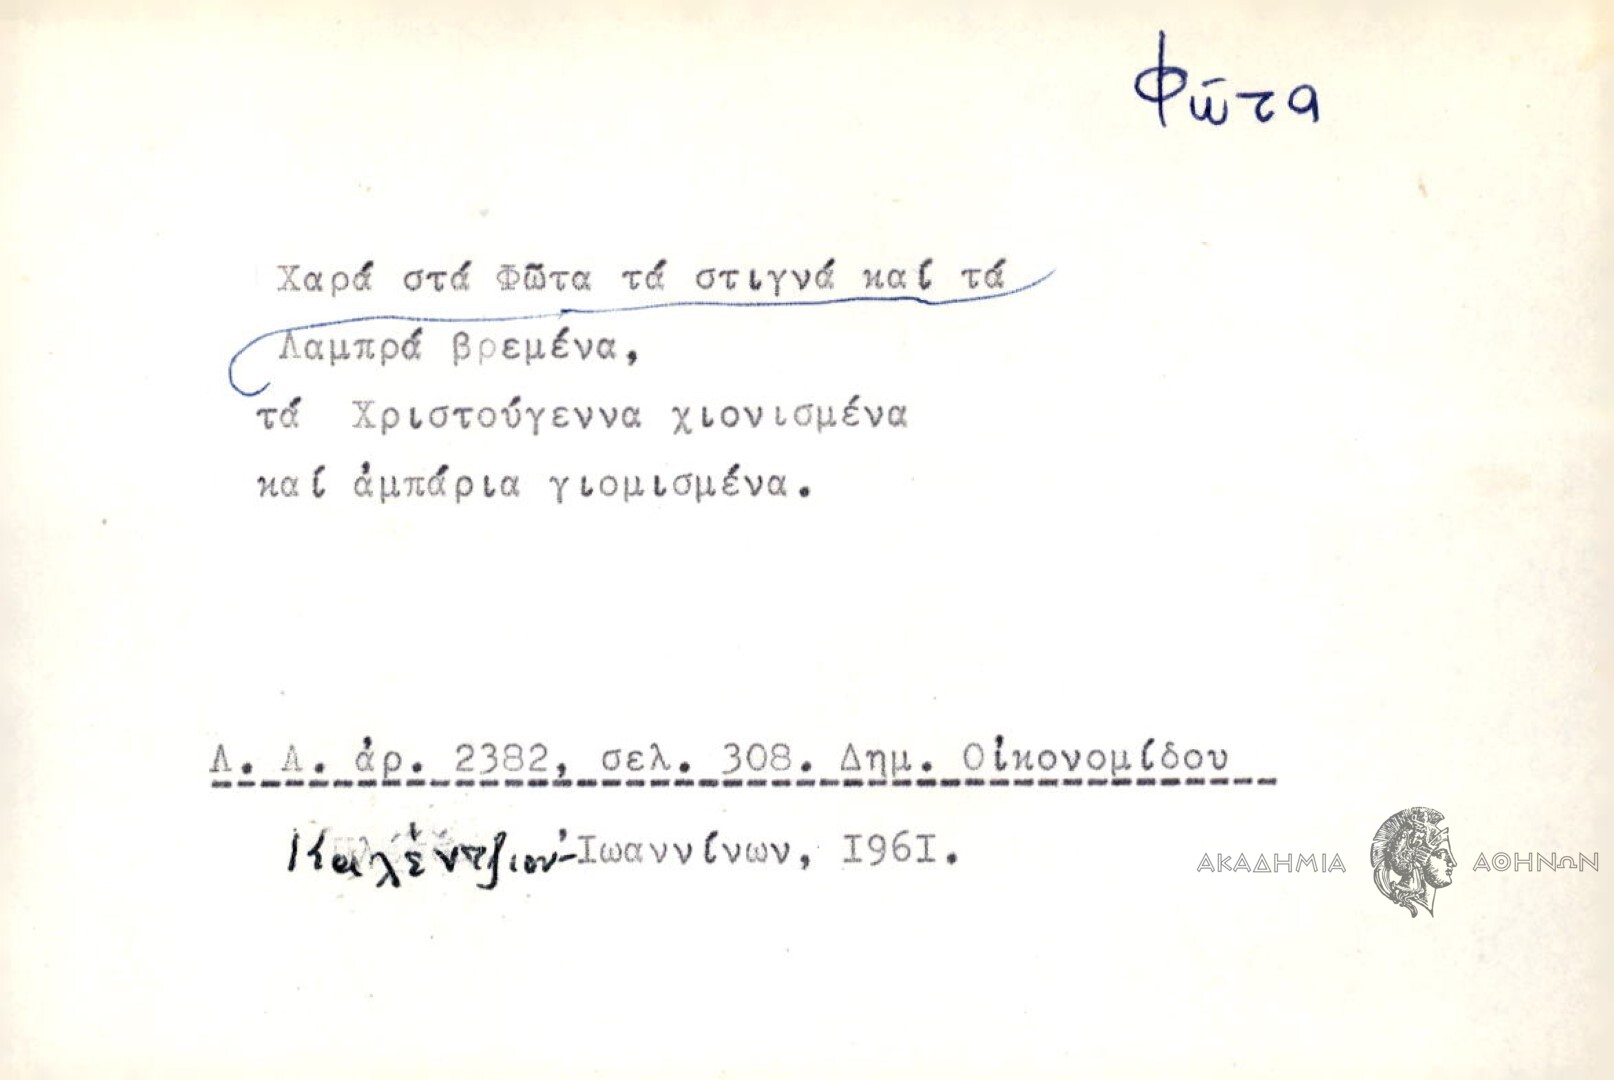 Φῶτα
Χαρά στά Φῶτα τά στιγνά καί τά
Λαμπρά βρεμένα,
τά Χριστούγεννα χιονισμένα
καί ἀμπάρια γιομισμένα.
Λ. Α. ἀρ. 2382, σελ. 308. Δημ. Οἰκονομίδου
Καλέντζιον-Ἰωαννίνων, 1961.
ΑΚΑΔΗΜΙΑ ΑΘΗΝΩΝ